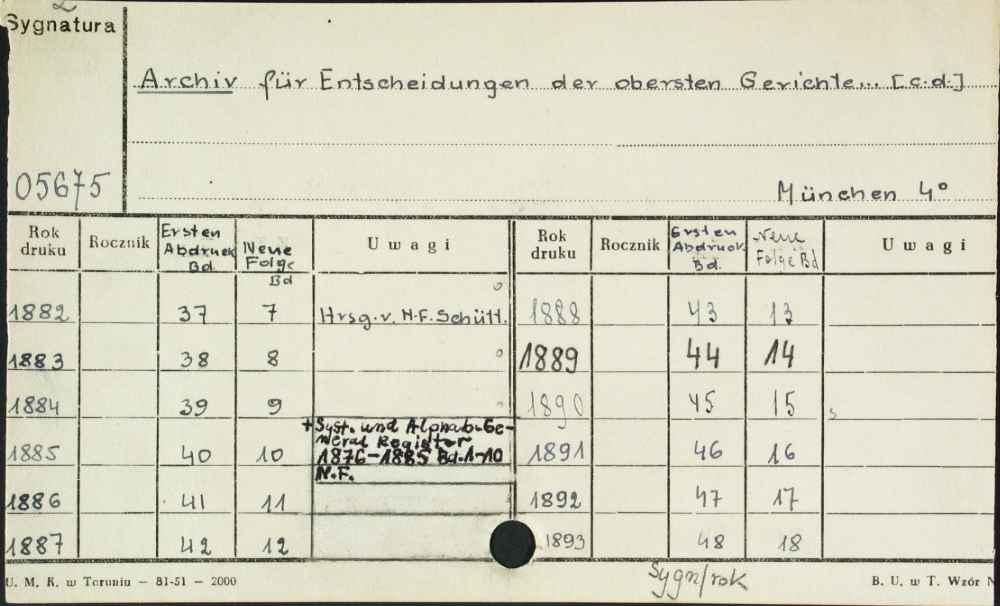 2
Sygnatura
Archiv für Entscheidungen der obersten Gerichte... [c.d.]
05675
München 4°
Rok druku Rocznik Ersten Abdruck Bd. Neue Folge Bd Uwagi Rok druku Rocznik Ersten Abdruck Bd. Neue Folge Bd Uwagi
1882 37 7 Hrsg. v. H.F. Schütt. 1888 43 13
1883 38 8 1889 44 14
1884 39 9 1890 45 15
+Syst. und Alphab. Ge-
neral Register
1885 40 10 1876-1885 Bd. 1-10 1891 46 16
N.F.
1886 41 11 1892 47 17
1887 42 12 1893 48 18
Sygn/rok
U. M. K. w Toruniu — 81-51 — 2000 B. U. w T. Wzór N